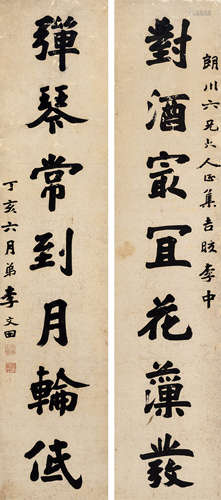 朗川六兄大人正集吉語李中
對酒冣宜花蘂發
彈琴常到月輪低
丁亥六月弟李文田